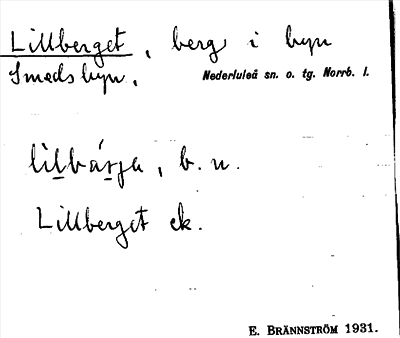 Lillberget, berg i byn
Smedsbyn.
Nederluleå sn. o. tg. Norrb. l.
lìlbásja, b. n.
Lillberget ek.
E. BRÄNNSTRÖM 1931.